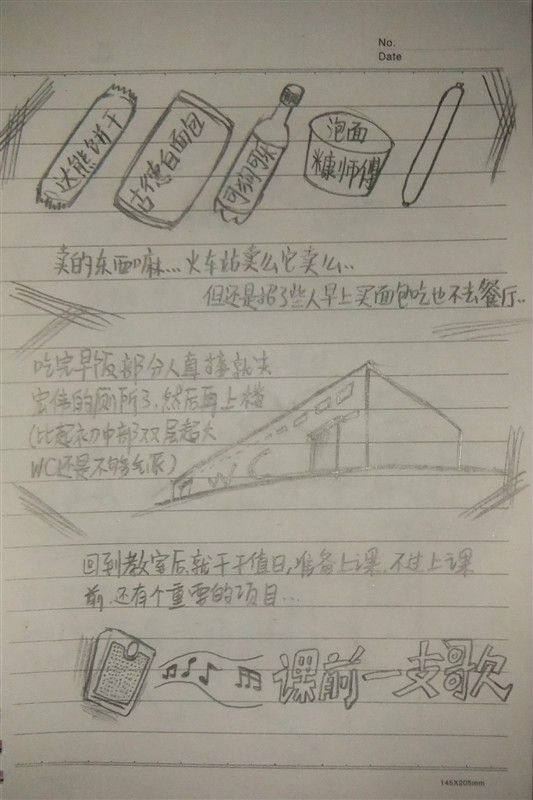 No.
Date
达能饼干
古德白面包
可狗可乐
泡面
糠师傅
卖的东西嘛...火车站卖么它卖么..
但还是招了些人早上买面包吃也不去餐厅..
吃完早饭部分人直接就去
宏伟的厕所了.然后再上楼
(比起初中部双层超大
WC还是不够气派)
WC
回到教室后就干干值日,准备上课,不过上课
前,还有个重要的项目...
课前一支歌
145X205mm